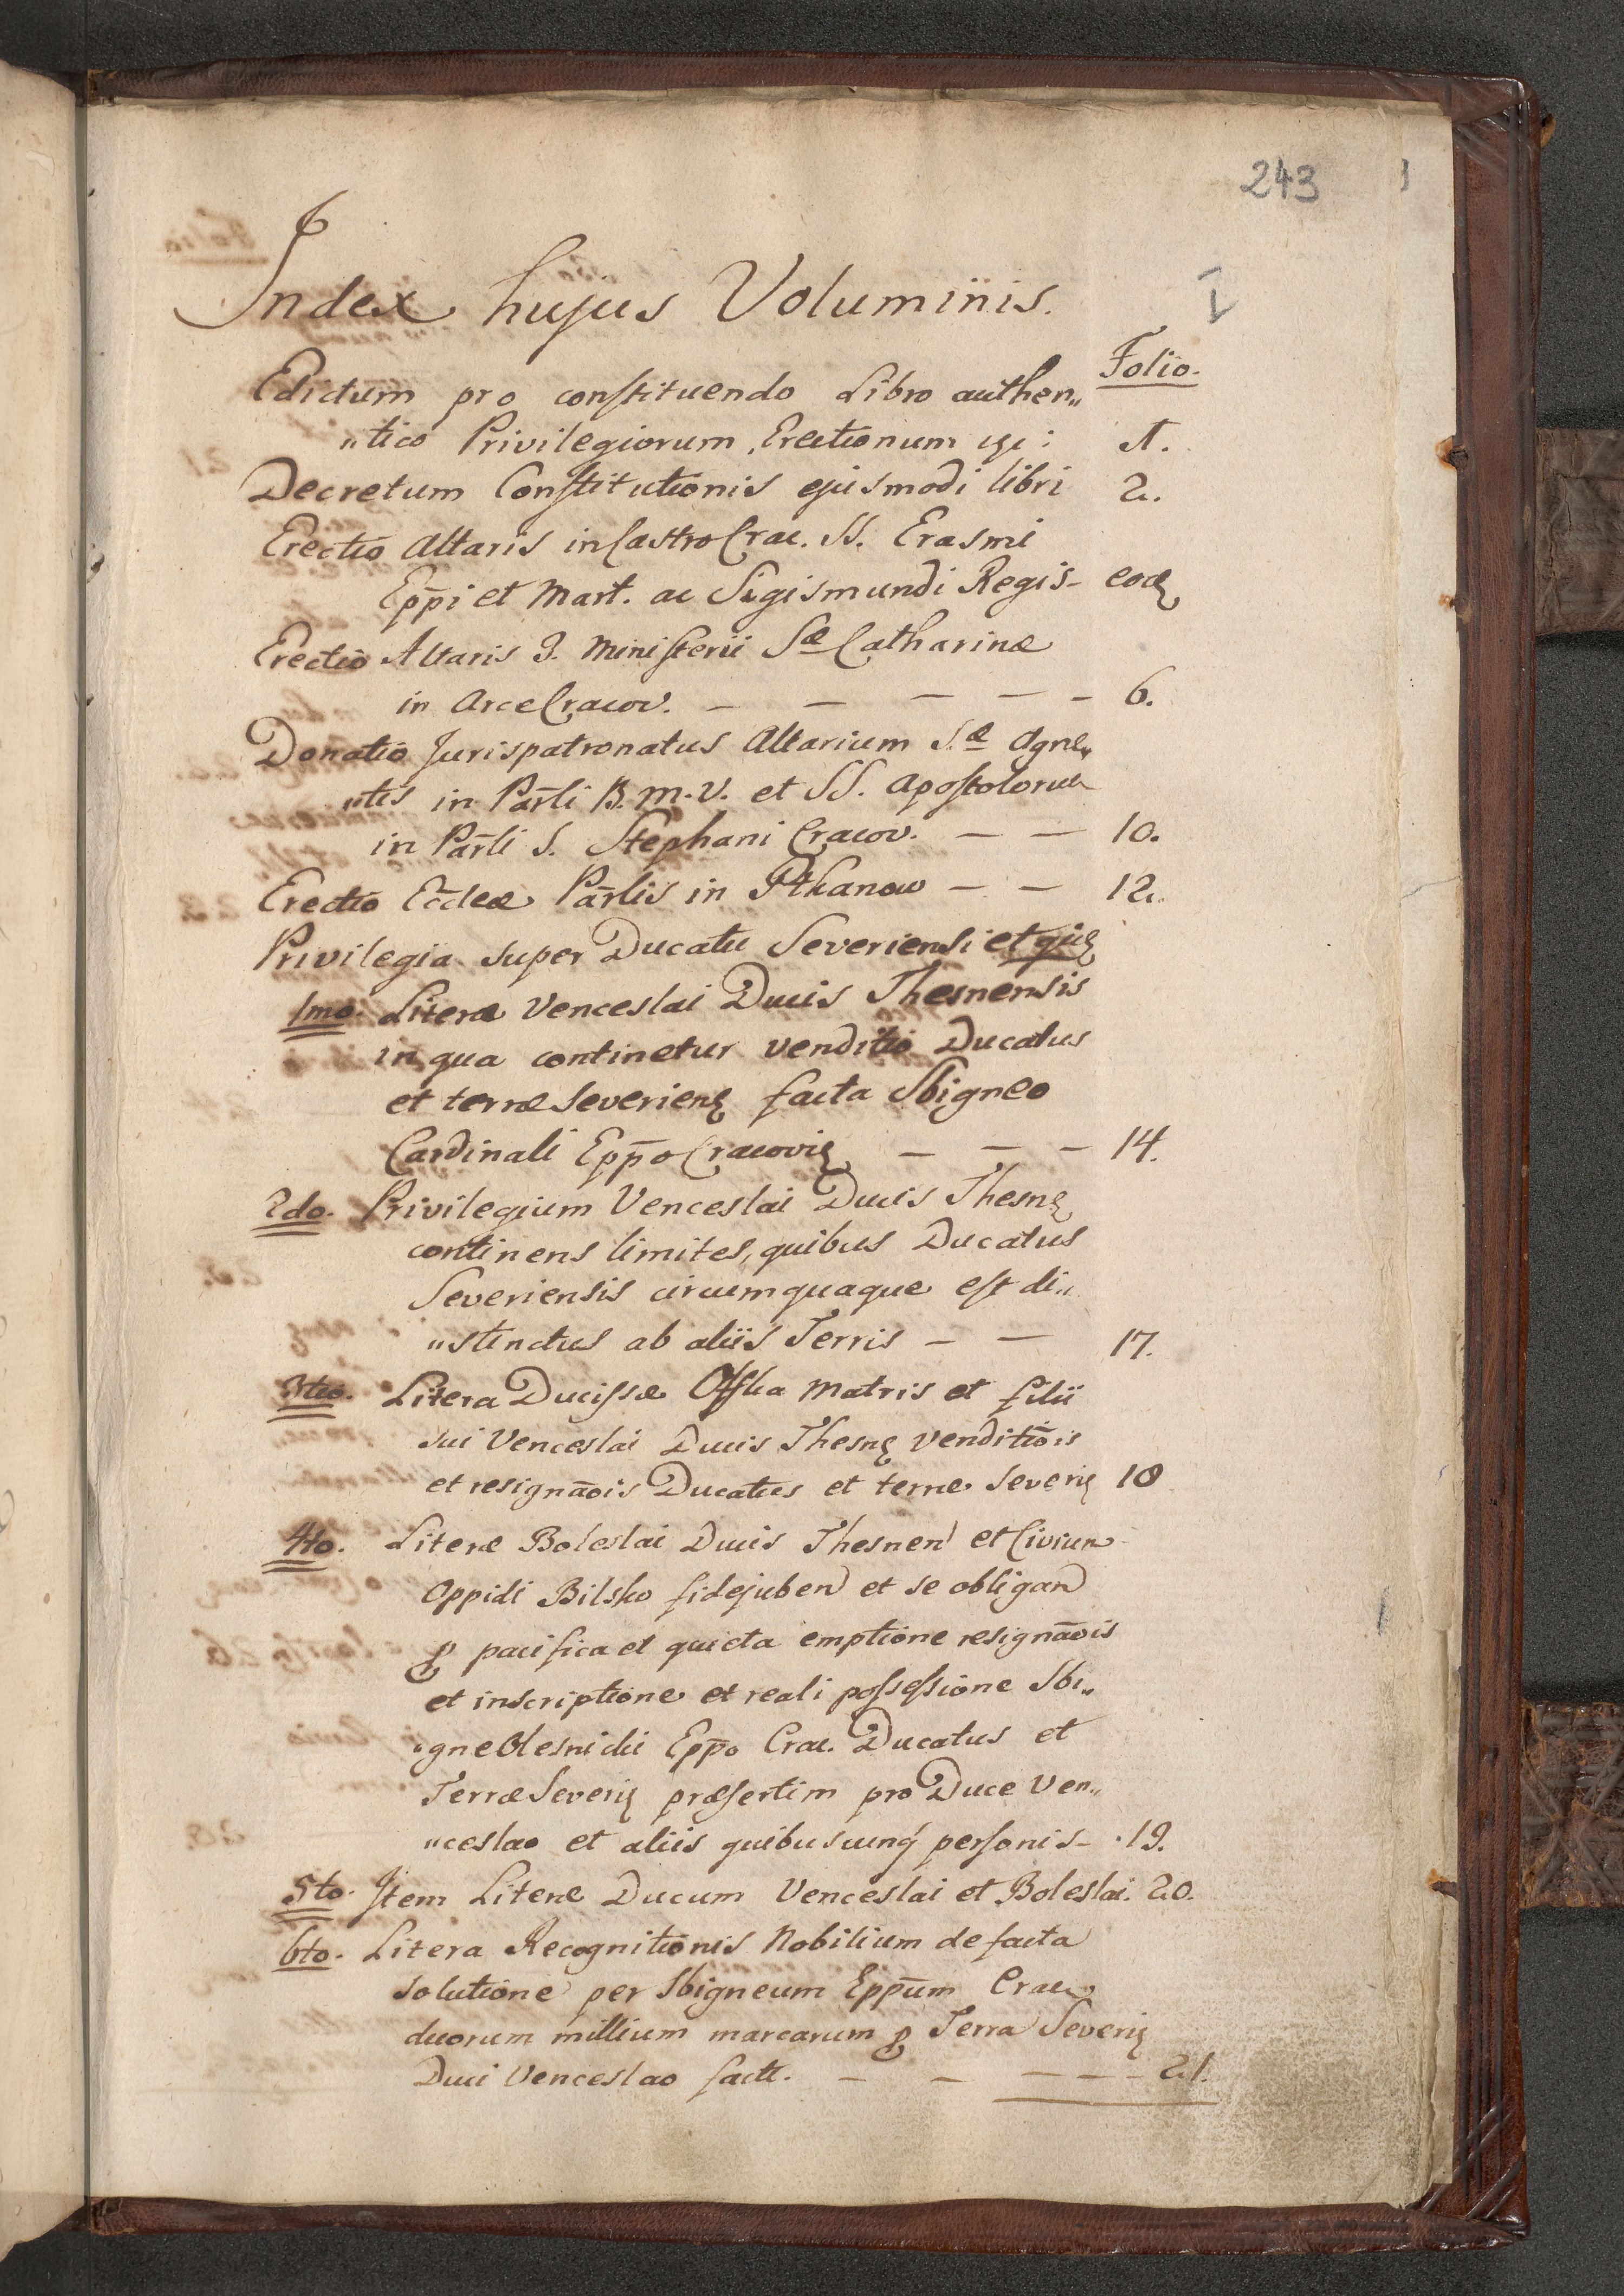 243
I
Index hujus Voluminis.
Folio.
Edictum pro constituendo Libro authen„
„tico Privilegiorum, Erectionum &c: 1.
Decretum Constitutionis ejusmodi libri 2.
Erectio Altaris in Castro Crac. SS. Erasmi
Epp̄i et Mart. ac Sigismundi Regis - eod
Erectio Altaris 3. Ministerii Sæ Catharinæ
in Arce Cracov. — — — — - 6.
Donatio Jurispatronatus Altarium S.æ Agne„
„tis in Par̄li B.M.V. et SS. Apostolorum
in Par̄li S. Stephani Cracov. — — 10.
Erectio Eccl̄eæ Par̄lis in Pthanow — — 12.
Privilegia super Ducatu Severiensi et
1mo. Literæ Venceslai Ducis Thesnensis
in qua continetur venditio Ducatus
et terræ Severien facta Sbigneo
Cardinali Epp̄o Cracovien — — - 14.
2do. Privilegium Venceslai Ducis Thesn
continens limites, quibus Ducatus
Severiensis circumquaque est di„
„stinctus ab aliis Terris — — 17.
3tio. Litera Ducissæ Offka Matris et filii
sui Venceslai Ducis Thesn venditiōis
et resignāōis Ducatus et terræ Severien 18
4to. Literæ Boleslai Ducis Thesnen et Civium
Oppidi Bilsko fidejuben et se obligan
p pacifica et quieta emptione resignāōis
et inscriptione et reali possessione Sbi„
„gne Olesnicki Epp̄o Crac. Ducatus et
Terræ Severien præsertim pro Duce Ven„
„ceslao et aliis quibuscunq personis - 19.
5to. Item Literæ Ducum Venceslai et Boleslai. 20.
6to. Litera Recognitionis Nobilium de facta
solutione per Sbigneum Epp̄um Crac.
duorum millium marcarum p Terra Severien
Duci Venceslao fact. — — — — - 21.